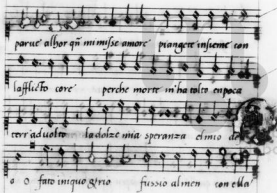 parve alhor qñ mi misse amore piangete insieme con
lafflicto core perche morte m'ha tolto en poca
terr' ad un volto la dolce mia speranza el mio
o o fato iniquo & rio fussio almen con ella